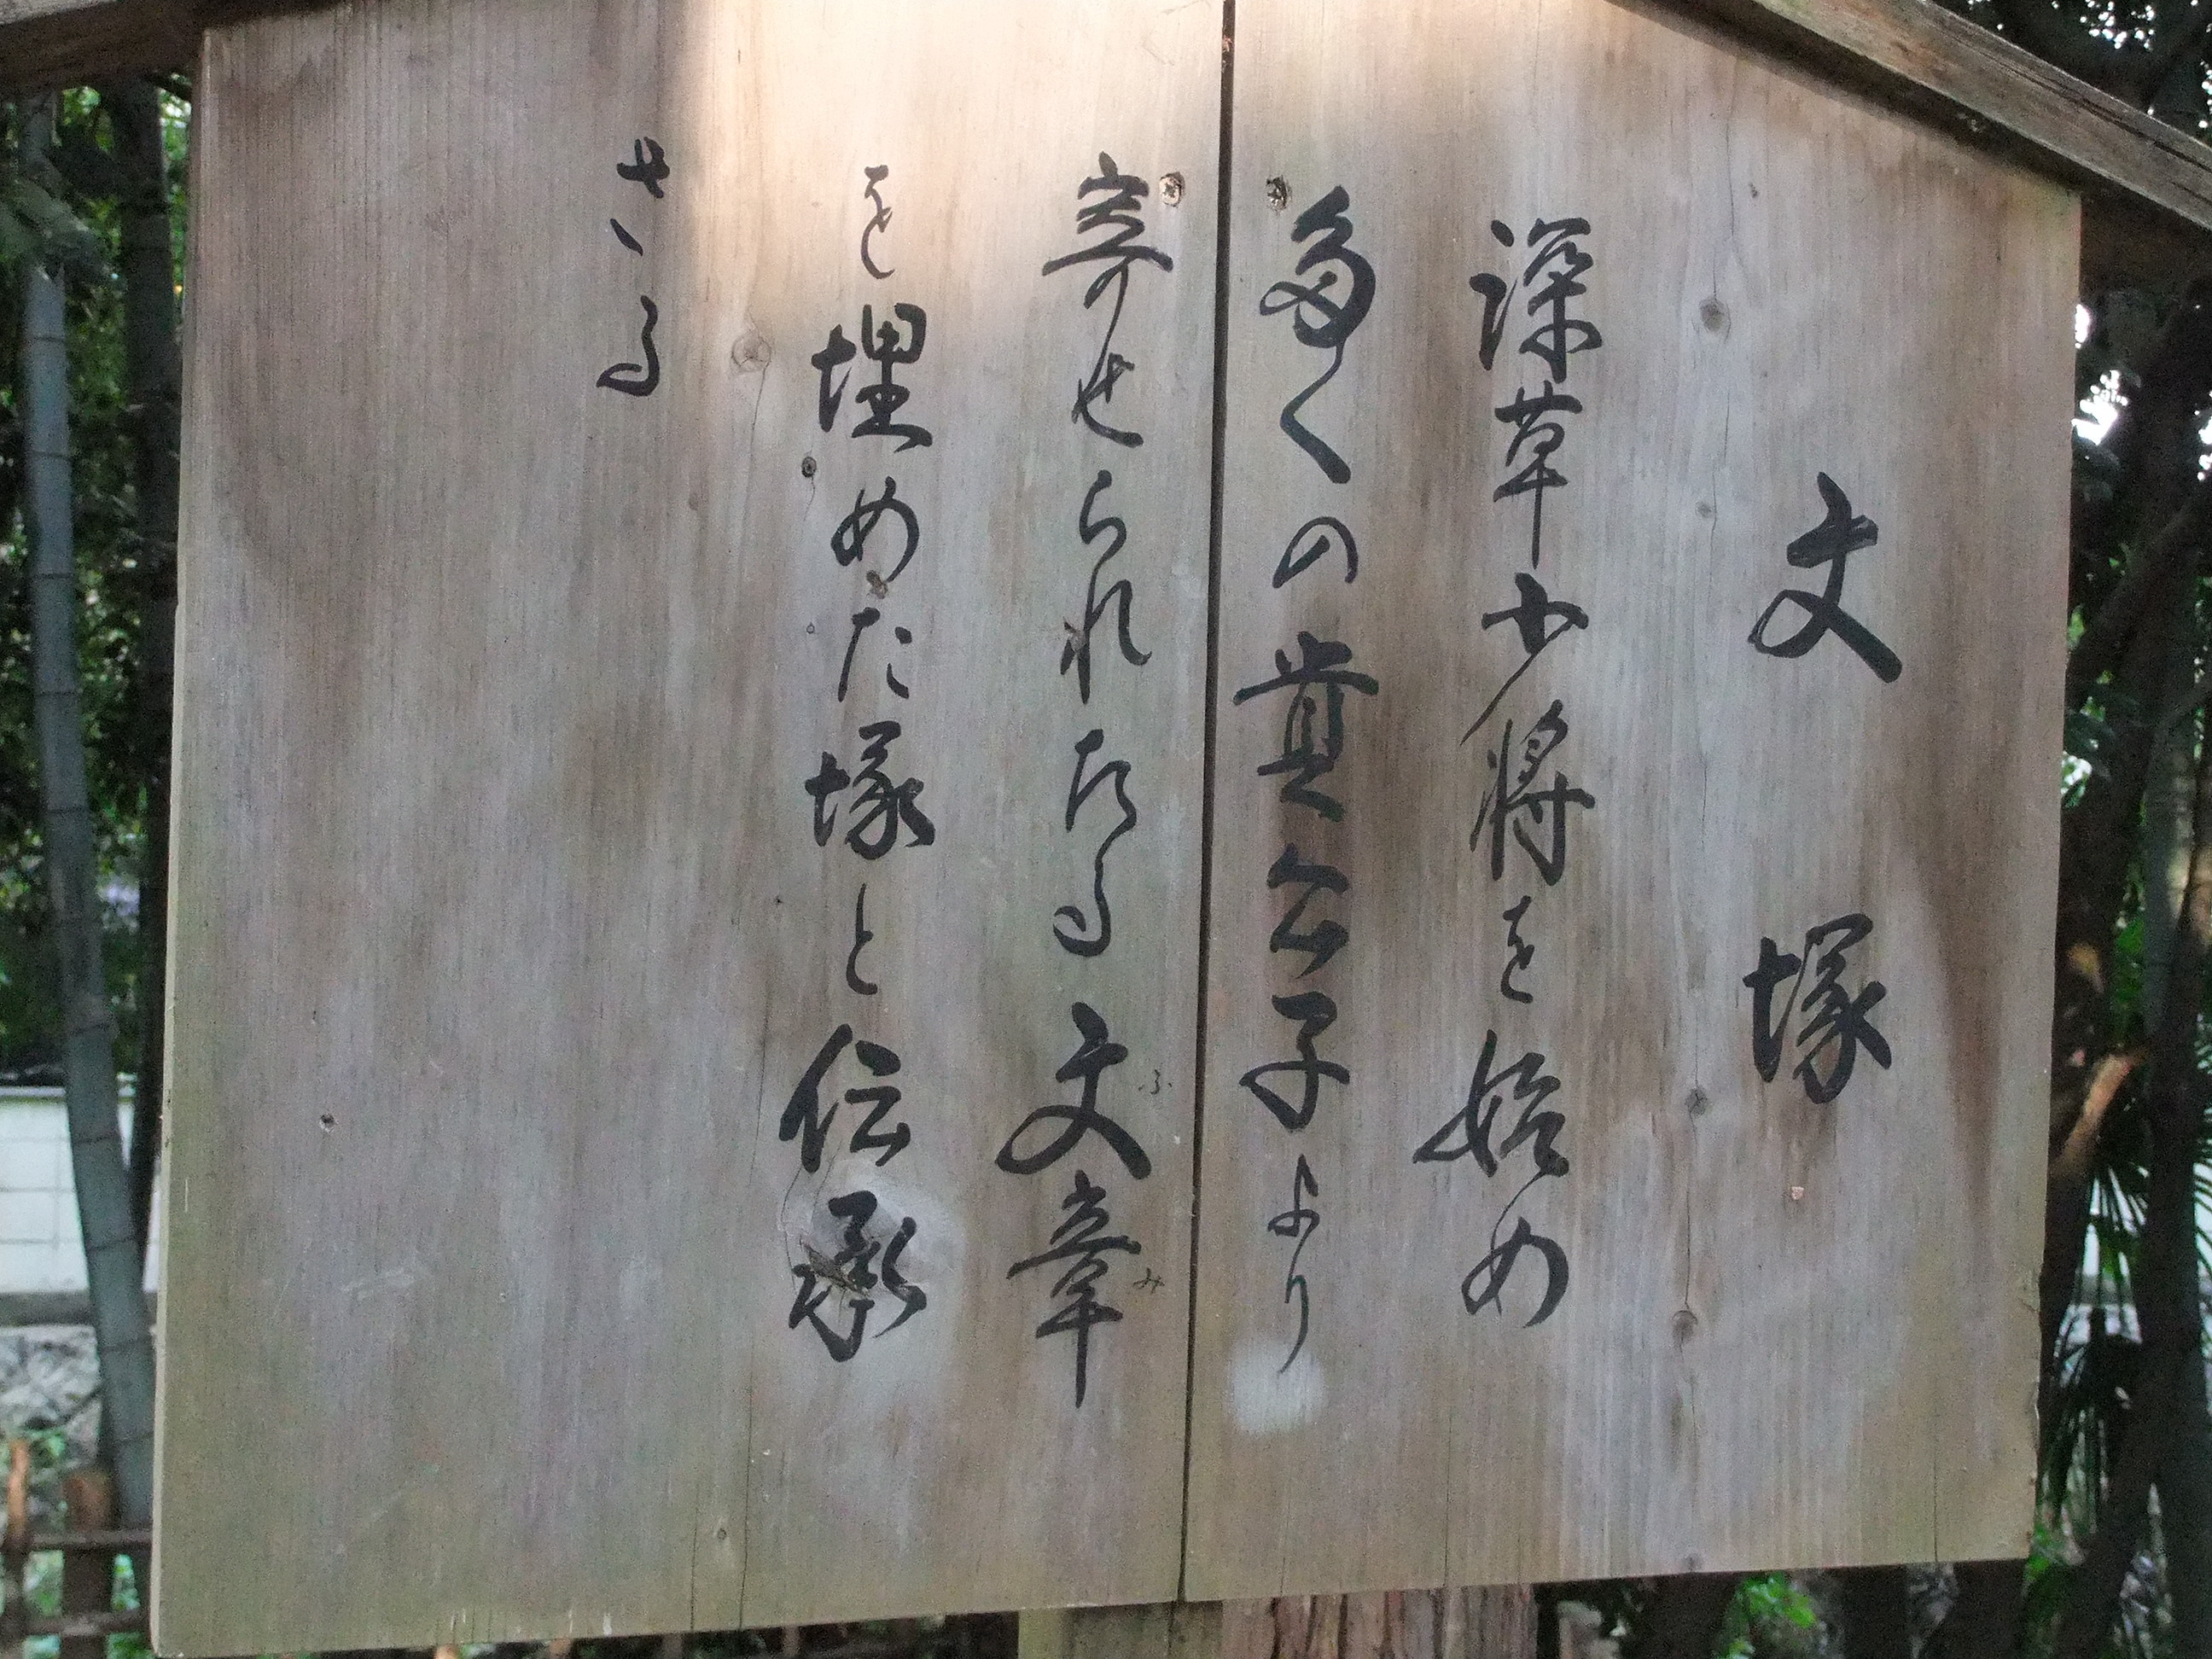 文塚
深草少将を始め
多くの貴公子より
寄せられたる文章
ふみ
を埋めた塚と伝承
さる